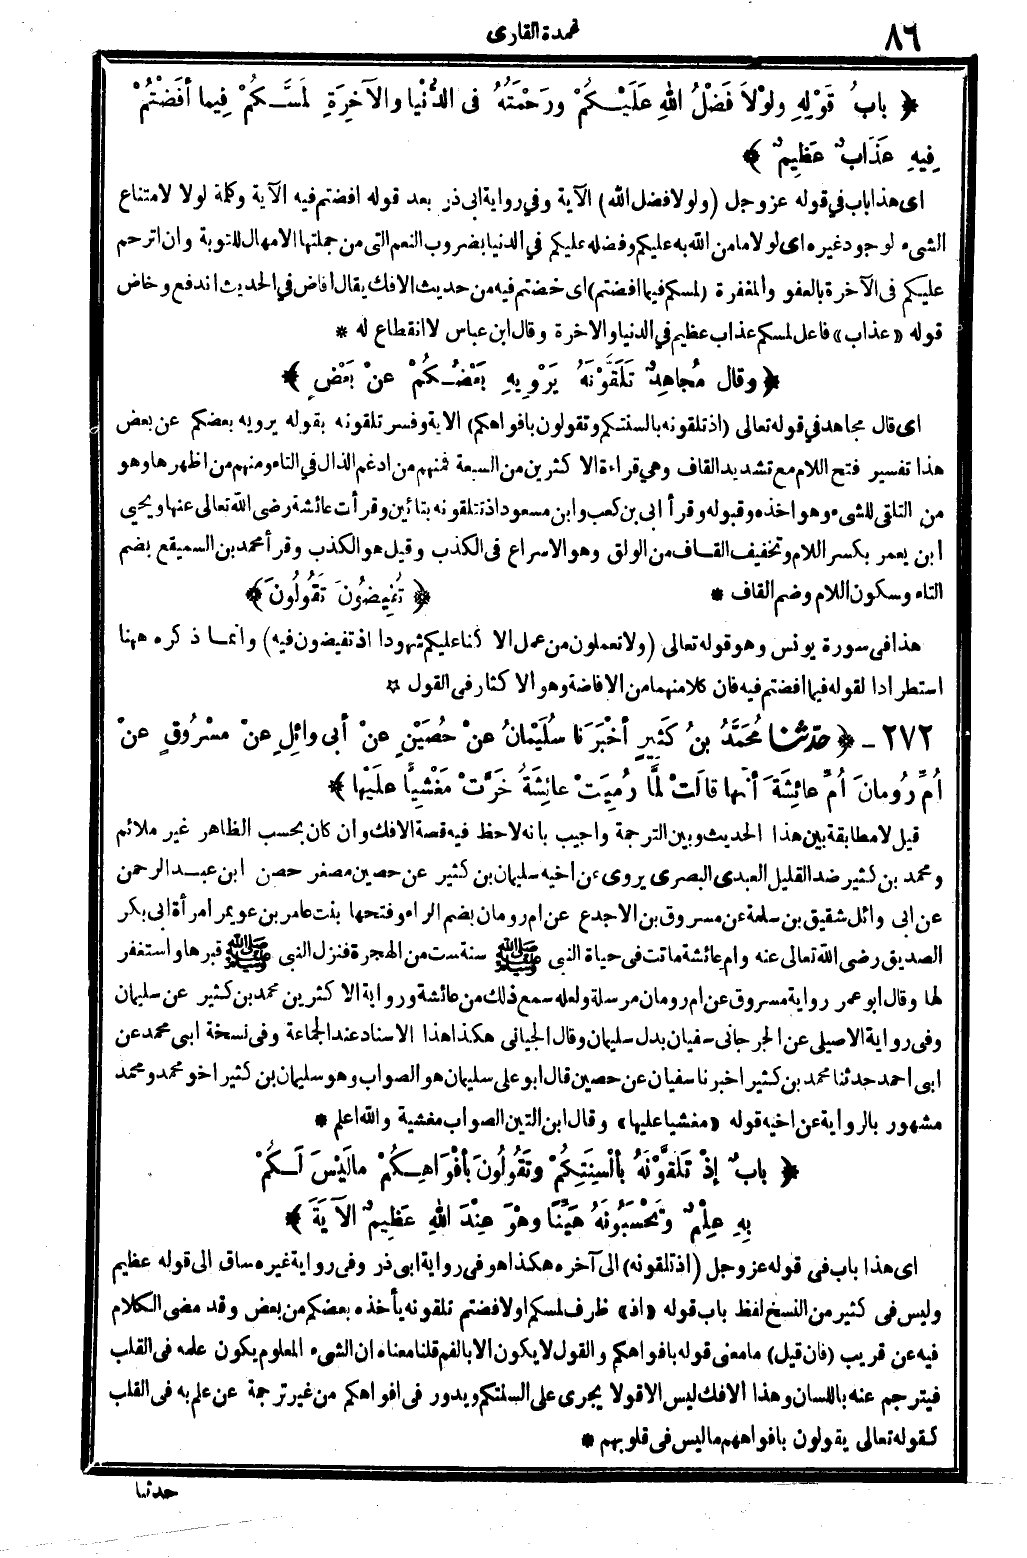 ٨٦
عمدة القارى
﴿ بابُ قَوْلِهِ ولوْلاَ فَضْلُ اللهِ عَلَيْكُمْ ورَحْمَتُهُ فى الدُّنْيا والآخِرَةِ لَمَسَّكُمْ فِيما أفَضْتُمْ
فِيهِ عَذَابٌ عَظِيمٌ ﴾
اى هذا باب في قوله عز وجل (ولولا فضل الله) الآية وفي رواية ابى ذر بعد قوله افضتم فيه الآية وكلمة لولا لامتناع
الشىء لوجود غيره اى لولا ما من الله به عليكم وفضله عليكم في الدنيا بضروب النعم التى من جملتها الامهال للتوبة وان اترحم
عليكم فى الآخرة بالعفو والمغفرة (لمسكم فيما افضتم) اى خضتم فيه من حديث الافك يقال أفاض في الحديث اندفع وخاض
قوله «عذاب» فاعل لمسكم عذاب عظيم في الدنيا والآخرة وقال ابن عباس لا انقطاع له *
﴿ وقال مُجاهِدٌ تَلَقَّوْنَهُ يَرْوِيهِ بَعْضُكُمْ عنْ بَعْضٍ ﴾
اى قال مجاهد في قوله تعالى (اذ تلقونه بالسنتكم وتقولون بافواهكم) الاية وفسر تلقونه بقوله يرويه بعضكم عن بعض
هذا تفسير فتح اللام مع تشديد القاف وهي قراءة الاكثرين من السبعة فمنهم من ادغم الذال في التاء ومنهم من اظهرها وهو
من التلقى للشىء وهو اخذه وقبوله وقرأ ابى بن كعب وابن مسعود اذ تتلقونه بتائين وقرأت عائشة رضى الله تعالى عنها ويحيى
ابن يعمر بكسر اللام وتخفيف القاف من الولق وهو الاسراع فى الكذب وقيل هو الكذب وقرأ محمد بن السميقع بضم
التاء وسكون اللام وضم القاف * ﴿ تُفِيضُونَ تَقُولُونَ ﴾
هذا فى سورة يونس وهو قوله تعالى (ولا تعملون من عمل الا كنا عليكم شهودا اذ تفيضون فيه) وانما ذكره ههنا
استطرادا لقوله فيما افضتم فيه فان كلا منهما من الافاضة وهو الاكثار فى القول ☆
٢٧٢ - ﴿ حدّثنا مُحَمَّدُ بنُ كَثِيرٍ أخْبَرَنا سُلَيْمانُ عنْ حُصَيْنٍ عنْ أبى وائِلٍ عنْ مسْرُوقٍ عنْ
اُمِّ رُومانَ اُمِّ عائِشَةَ أنَّها قالَتْ لَمَّا رُمِيَتْ عائِشَةُ خَرَّتْ مَغْشِيًّا علَيْها ﴾
قيل لا مطابقة بين هذا الحديث وبين الترجمة واجيب بانه لاحظ فيه قصة الافك وان كان بحسب الظاهر غير ملائم
ومحمد بن كثير ضد القليل العبدى البصرى يروى عن اخيه سليمان بن كثير عن حصين مصغر حصن ابن عبد الرحمن
عن ابى وائل شقيق بن سلمة عن مسروق بن الاجدع عن ام رومان بضم الراء وفتحها بنت عامر بن عويمر امرأة ابى بكر
الصديق رضى الله تعالى عنه وام عائشة ماتت فى حياة النبى ﷺ سنة ست من الهجرة فنزل النبى ﷺ قبرها واستغفر
لها وقال ابو عمر رواية مسروق عن ام رومان مرسلة ولعله سمع ذلك من عائشة ورواية الاكثرين محمد بن كثير عن سليمان
وفى رواية الاصيلى عن الجرجانى سفيان بدل سليمان وقال الجيانى هكذا هذا الاسناد عند الجماعة وفى نسخة ابى محمد عن
ابى احمد حدثنا محمد بن كثير اخبرنا سفيان عن حصين قال ابو على سليمان هو الصواب وهو سليمان بن كثير اخو محمد ومحمد
مشهور بالرواية عن اخيه قوله «مغشيا عليها» وقال ابن التين الصواب مغشية والله اعلم *
﴿ بابٌ إذْ تَلَقَّوْنَهُ بألْسِنَتِكُمْ وتَقُولُونَ بأفْوَاهِكُمْ ما لَيْسَ لَكُمْ
بِهِ عِلْمٌ وتَحْسَبُونَهُ هَيِّنًا وهْوَ عِنْدَ اللهِ عَظِيمٌ الآيَةَ ﴾
اى هذا باب فى قوله عز وجل (اذ تلقونه) الى آخره هكذا هو فى رواية ابى ذر وفى رواية غيره ساق الى قوله عظيم
وليس فى كثير من النسخ لفظ باب قوله «اذ» ظرف لمسكم او لافضتم تلقونه يأخذه بعضكم من بعض وقد مضى الكلام
فيه عن قريب (فان قيل) ما معنى قوله بافواهكم والقول لا يكون الا بالفم قلنا معناه ان الشىء المعلوم يكون علمه فى القلب
فيترجم عنه باللسان وهذا الافك ليس الا قولا يجرى على السنتكم ويدور فى افواهكم من غير ترجمة عن علم به فى القلب
كقوله تعالى يقولون بافواههم ما ليس فى قلوبهم *
حدثنا